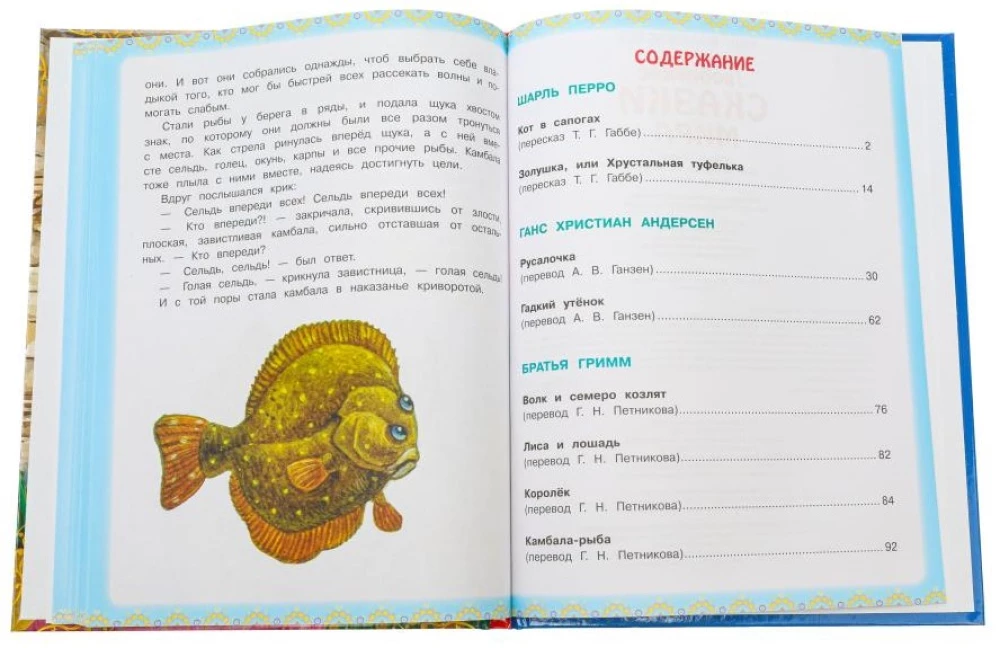 они. И вот они собрались однажды, чтоб выбрать себе вла-
дыкой того, кто мог бы быстрей всех рассекать волны и по-
могать слабым.
Стали рыбы у берега в ряды, и подала щука хвостом
знак, по которому они должны были все разом тронуться
с места. Как стрела ринулась вперёд щука, а с ней вме-
сте сельдь, голец, окунь, карпы и все прочие рыбы. Камбала
тоже плыла с ними вместе, надеясь достигнуть цели.
Вдруг послышался крик:
— Сельдь впереди всех! Сельдь впереди всех!
— Кто впереди?! — закричала, скривившись от злости,
плоская, завистливая камбала, сильно отставшая от осталь-
ных. — Кто впереди?
— Сельдь, сельдь! — был ответ.
— Голая сельдь, — крикнула завистница, — голая сельдь!
И с той поры стала камбала в наказанье криворотой.
СОДЕРЖАНИЕ
ШАРЛЬ ПЕРРО
Кот в сапогах
(пересказ Т. Г. Габбе) 2
Золушка, или Хрустальная туфелька
(пересказ Т. Г. Габбе) 14
ГАНС ХРИСТИАН АНДЕРСЕН
Русалочка
(перевод А. В. Ганзен) 30
Гадкий утёнок
(перевод А. В. Ганзен) 62
БРАТЬЯ ГРИММ
Волк и семеро козлят
(перевод Г. Н. Петникова) 76
Лиса и лошадь
(перевод Г. Н. Петникова) 82
Королёк
(перевод Г. Н. Петникова) 84
Камбала-рыба
(перевод Г. Н. Петникова) 92